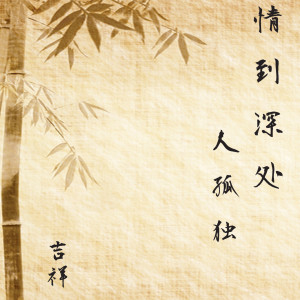 情到深处
人孤独
吉祥